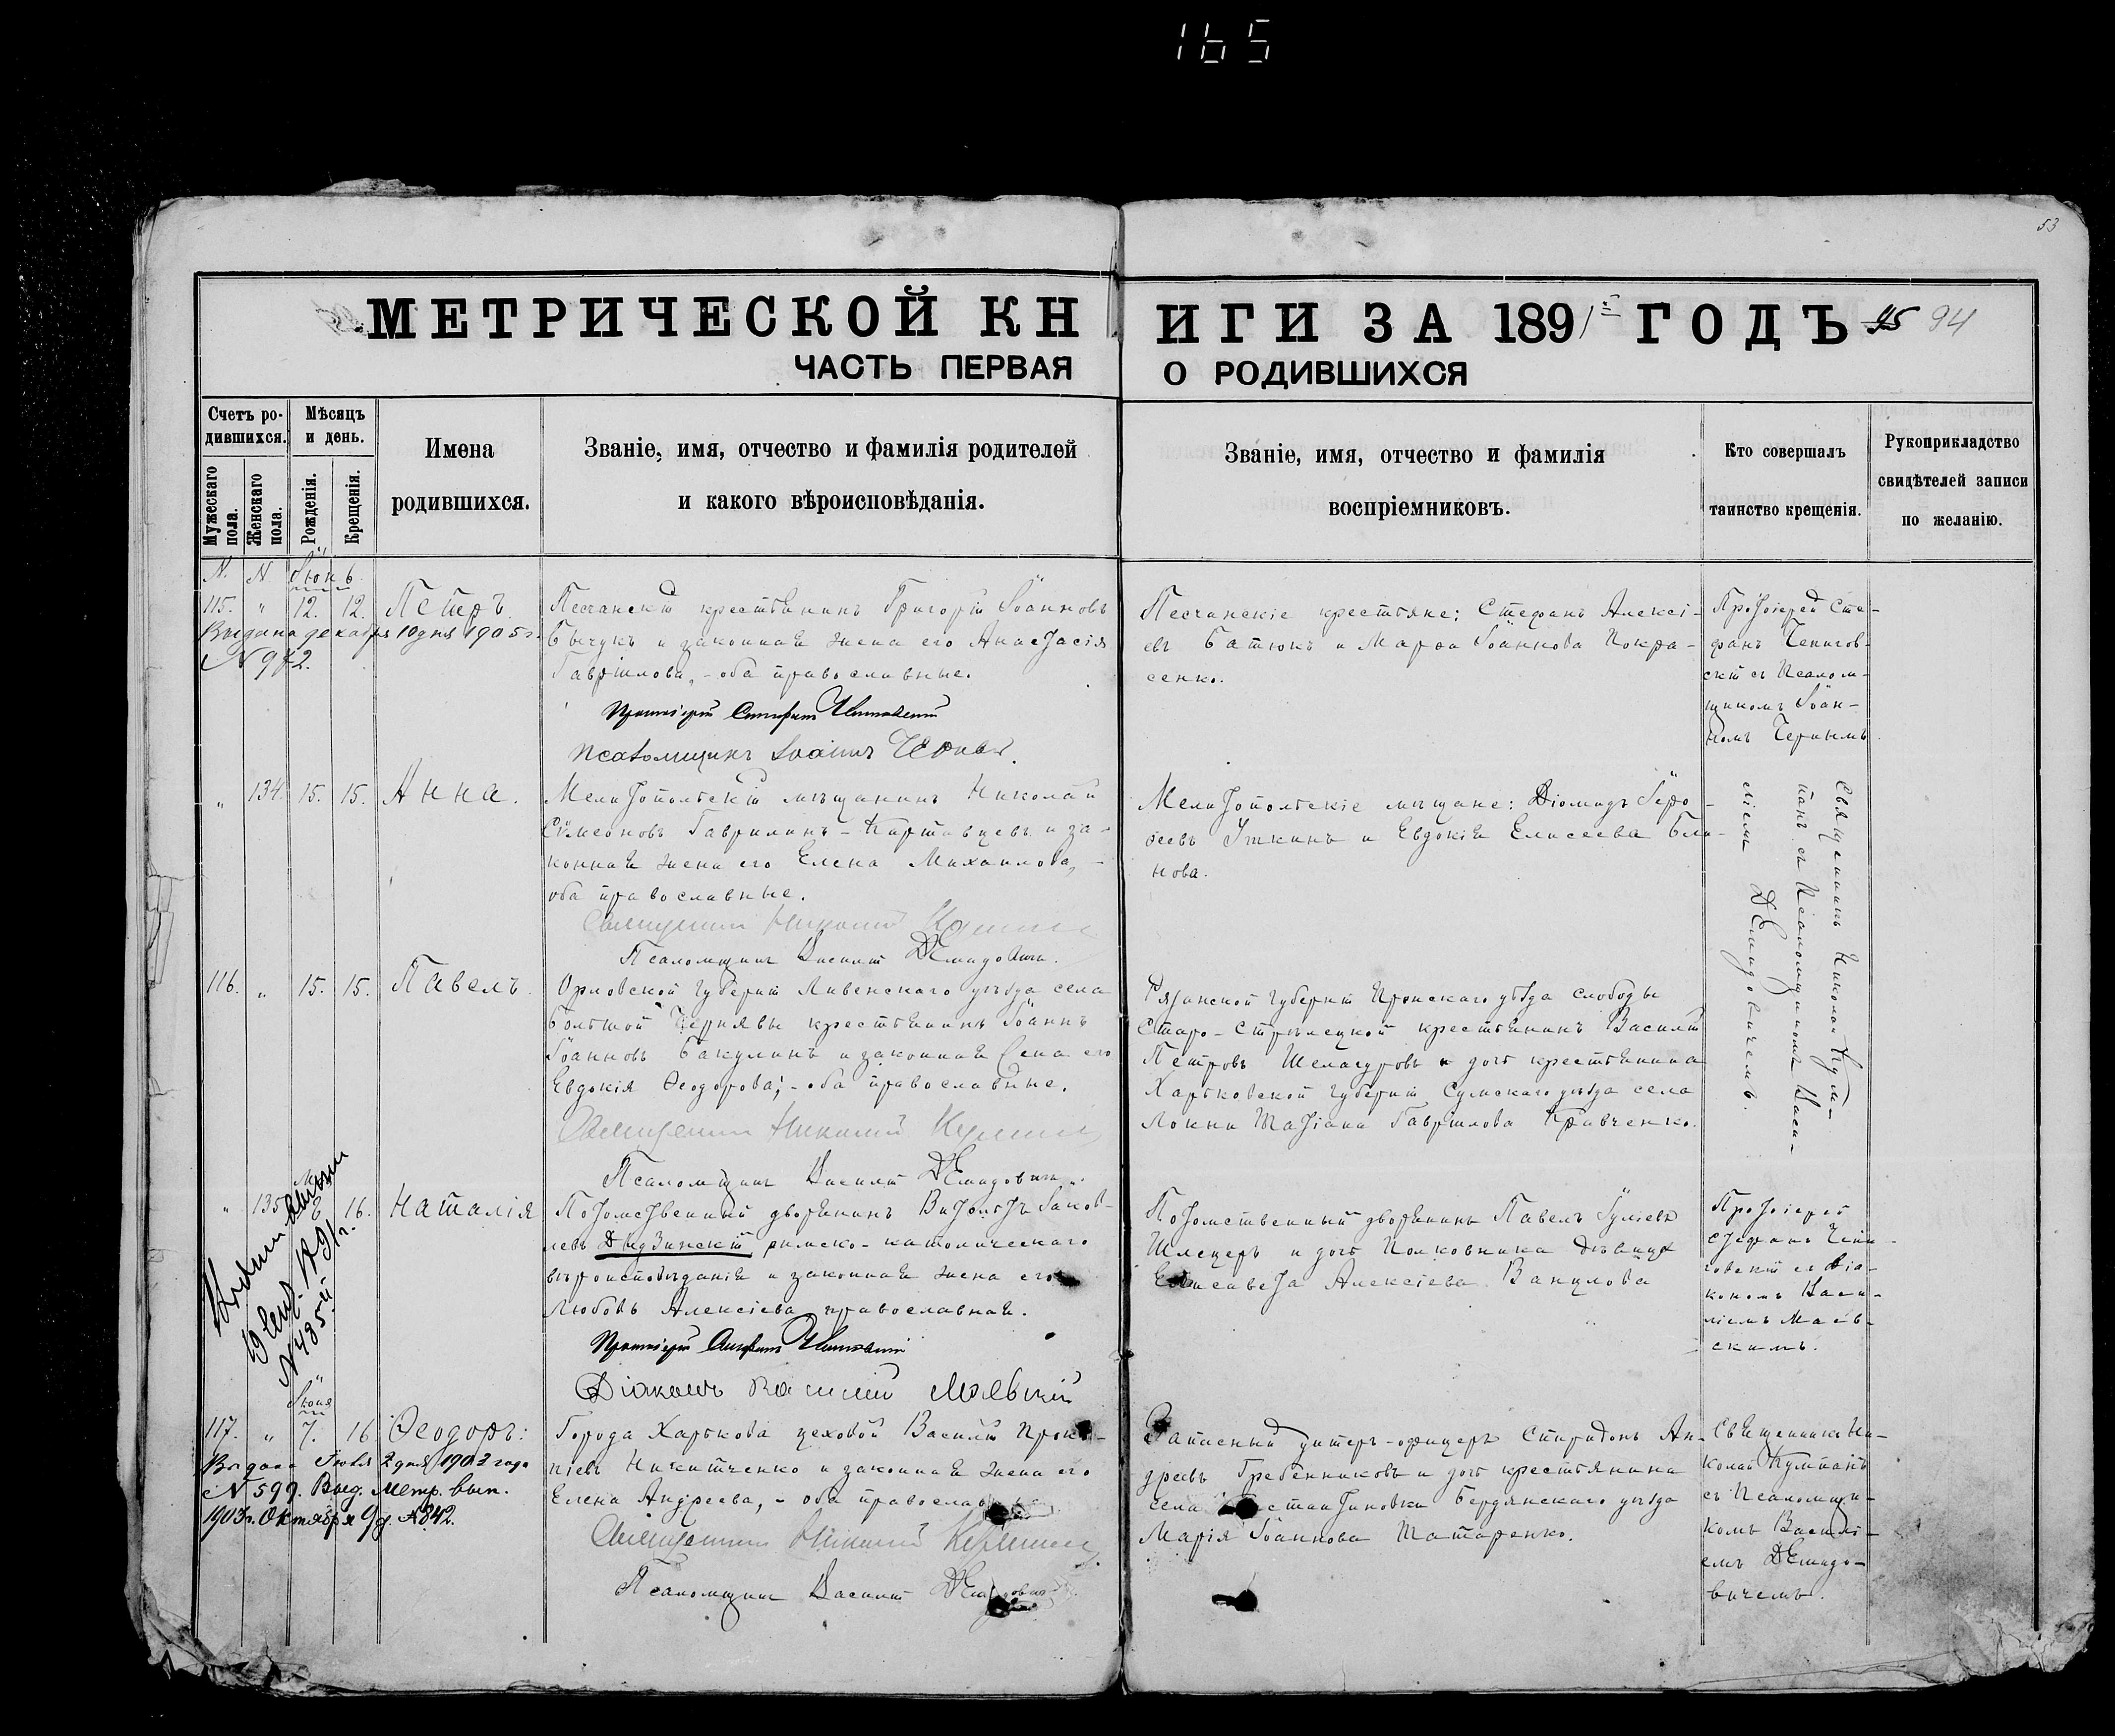 165
53
МЕТРИЧЕСКОЙ КНИГИ ЗА 1891й ГОДЪ 95 94
ЧАСТЬ ПЕРВАЯ О РОДИВШИХСЯ
Счетъ ро-
дившихся.
Мужескаго пола.
Женскаго пола.
Мѣсяцъ
и день.
Рожденія.
Крещенія.
Имена
родившихся.
Званіе, имя, отчество и фамилія родителей
и какого вѣроисповѣданія.
Званіе, имя, отчество и фамилія
воспріемниковъ.
Кто совершалъ
таинство крещенія.
Рукоприкладство
свидѣтелей записи
по желанію.
N. N Іюнь
115. " 12. 12. Петръ.
Выдана декабря 10 дня 1905 г.
N 982.
Песчанскій крестьянинъ Григорій Іоанновъ
Бычукъ и законная жена его Анастасія
Гавріилова, - оба православные.
Протоіерей Стефанъ
Псаломщикъ Іоаннъ Черный
Песчанскіе крестьяне: Стефанъ Алексі-
евъ Батюкъ и Марѳа Іоаннова Покра-
сенко.
Протоіерей Сте-
фанъ
скій съ Псалом-
щикомъ Іоан-
номъ Чернымъ
" 134. 15. 15. Анна.
Мелитопольскій мѣщанинъ Николай
Симеоновъ Гаврилинъ - Картавцевъ и за-
конная жена его Елена Михаилова, -
оба православные.
Священникъ Николай
Псаломщикъ Василій Демидовичъ.
Мелитопольскіе мѣщане: Діомидъ
Уткинъ и Евдокія Елисеева Бли-
нова.
Священникъ Николай Кум-
панъ съ Псаломщикомъ Васи-
ліемъ Демидовичемъ.
116. " 15. 15. Павелъ
Орловской губерніи Ливенскаго уѣзда села
Большой Чернявы крестьянинъ Іоаннъ
Іоанновъ Бакулинъ и законная жена его
Евдокія Ѳеодорова; - оба православные.
Священникъ Николай
Псаломщикъ Василій Демидовичъ.
Рязанской губерніи Пронскаго уѣзда слободы
Старо-Стрѣлецкой крестьянинъ Василій
Петровъ Шелагуровъ и дочь крестьянина
Харьковской губерніи Сумскаго уѣзда села
Локни Татіана Гавріилова Кравченко.
" 135 16. Наталія
19 Сент. 1891 г.
N 485й
Потомственный дворянинъ Витольдъ Яков-
левъ римско-католическаго
вѣроисповѣданія и законная жена его
Любовь Алексіева православная.
Протоіерей Стефанъ
Діаконъ Василій Маевскій
Потомственный дворянинъ Павелъ Юліевъ
Шлецеръ и дочь Полковника дѣвица
Елисавета Алексіева Ванцлова
Протоіерей
Стефанъ
говскій съ Діа-
кономъ Васи-
ліемъ Маев-
скимъ.
Іюня
117. " 7. 16. Ѳеодоръ:
Выдана Іюля 2 дня 1902 года
N 599. Выд. метр. вып.
1903 г. Октября 9 д. N 842.
Города Харькова цеховой Василій Проко-
піевъ Никитченко и законная жена его
Елена Андреева, - оба православные.
Священникъ Николай
Псаломщикъ Василій Демидовичъ
Запасный унтеръ-офицеръ Спиридонъ Ан-
дреевъ Гребенниковъ и дочь крестьянина
села Константиновки Бердянскаго уѣзда
Марія Іоаннова Татаренко.
Священникъ Ни-
колай Кумпанъ
съ Псаломщи-
комъ Василі-
емъ Демидо-
вичемъ.